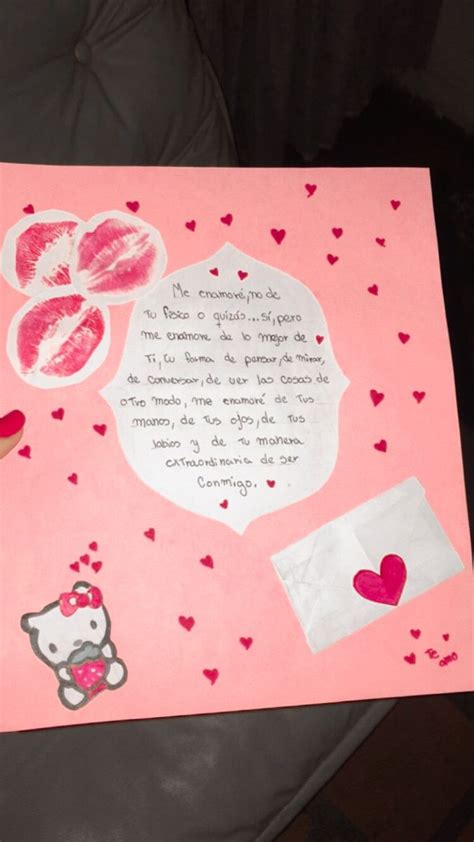 Me enamoré, no de
Tu fisico o quizás...sí, pero
me enamore de lo mejor de
Ti, tu forma de pensar, de mirar,
de conversar, de ver las cosas de
otro modo, me enamoré de Tus
manos, de Tus ojos, de Tus
labios y de Tu manera
extraordinaria de ser
Conmigo.
Te
amo